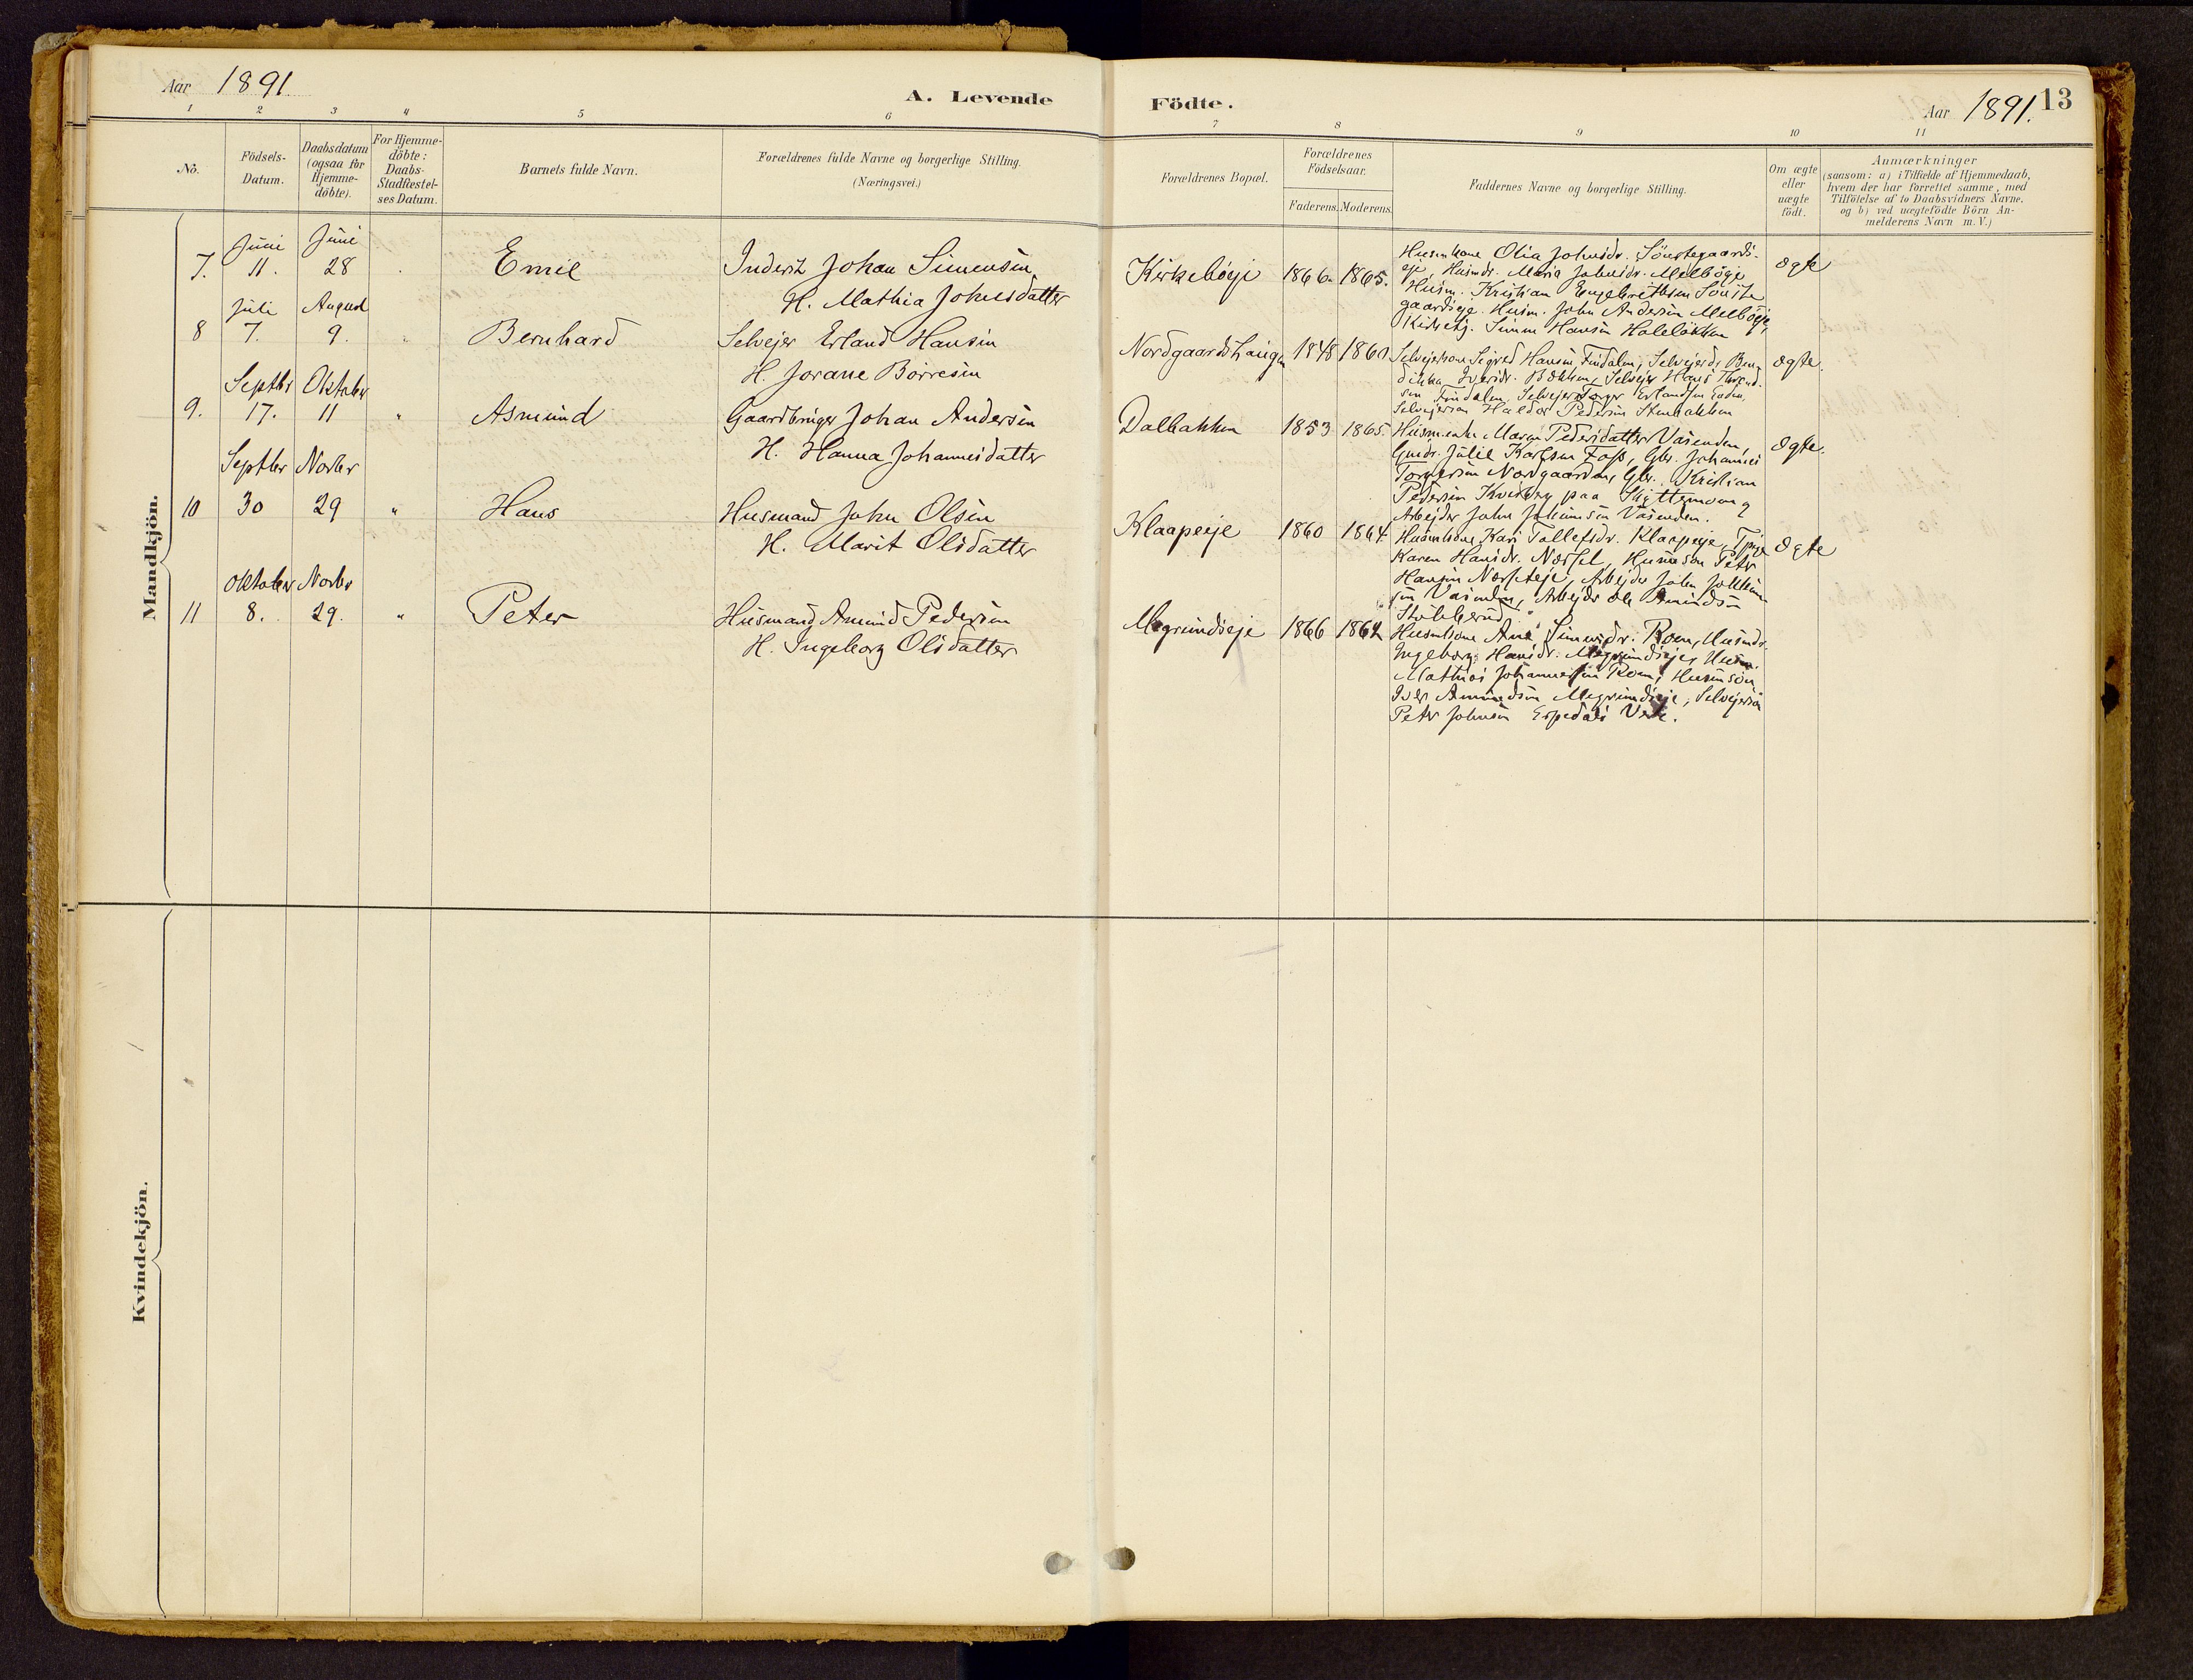 Aar 1891
A. Levende Födte.
Aar 1891. 13
1 2 3 4 5 6 7 8 9 10 11
No.
Födsels-Datum.
Daabsdatum (ogsaa for Hjemme-döbte).
For Hjemme-döbte: Daabs-Stadfæstel-ses Datum.
Barnets fulde Navn.
Forældrenes fulde Navne og borgerlige Stilling.
(Næringsvei.)
Forældrenes Bopæl.
Forældrenes Födselsaar.
Faderens. Moderens.
Faddernes Navne og borgerlige Stilling.
Om ægte eller uægte födt.
Anmærkninger
(saasom: a) i Tilfælde af Hjemmedaab,
hvem der har forrettet samme, med
Tilföielse af to Daabsvidners Navne.
og b) ved uægtefödte Börn An-
melderens Navn m.V.)
Mandkjön.
Juni Juni
7. 11. 28 Emil Inderst Johan Simensen
H. Mathia Johnsdatter
Kirkebøeje 1866. 1865.
Husmkone Olia Johnsdr. Sönstegaards-
eje, Husmdr. Maria Johnsdr. Melböeje
Husm. Kristian Engebrethsen Sönste
gaardseje. Husm. John Andersen Melböeje,
Simen Hansen Haleløkken
ægte
Juli August
8 7. 9. " Bernhard Selvejer Erland Hansen
H. Jorane Börresen
Nordgaardshaugen 1848 1860
Selvejerkone Sigrid Hansen Findalen, Selvejerdr. Ben-
dikka Iversdr. Bakken, Selvejer Hans
sen Findalen, Selvejer Torger Erlandsen
Selvejersön Haldor Pedersen Stenbakken
ægte.
Septbr Oktober
9. 17. 11 " Asmund Gaardbruger Johan Andersen
H. Hanna Johannesdatter
Dalbakken 1853 1865.
Husm.enke Maren Pedersdatter Vasenden,
Gmdr. Julie Karlsen Foss, Gbr. Johannes
Torgersen Nordgaarden, Gbr. Kristian
Pedersen Kvisberg paa Skyttemoen og
Arbejder John Johnsen Vasenden.
ægte.
Septbr Novbr
10 30 29 " Hans Husmand John Olsen
H. Marit Olsdatter
Klaapeeje 1860 1864
Husmkone Kari Tollefsdr. Klaapeeje, Pige
Karen Hansdr. Næsset, Husmsön Peter
Hansen Næsseteje, Arbejder John
sen Vasenden, Arbejder Ole Amundsen
Stubberud.
ægte
Oktober Novbr
11 8. 29. " Peter Husmand Amund Pedersen
H. Ingeborg Olsdatter
Megrundseje 1866 1864
Husmkone Ane Simensdr. Roen, Husmdr.
Ingeborg Hansdr. Megrundseje, Husm.
Mathias Johannessen Roen, Husmsön
Iver Amundsen Megrundseje, Selvejersön
Peter Johnsen Espedals Verk.
Kvindekjön.